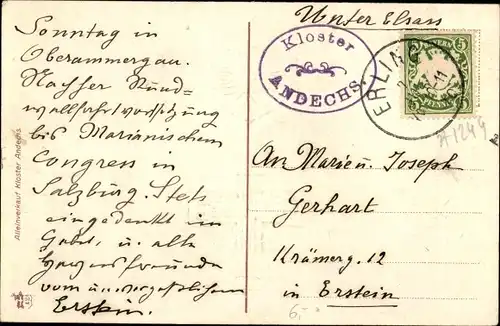 Sonntag in
Oberammergau.
Nachher Rund=
wallfahrtsfortsetzung
bis Marianischen
Congress in
Salzburg. Stets
eingedenkt im
Gebet, u. alle
vom unvergesslichen
Erstein.
Alleinverkauf Kloster Andechs.
Unter Elsass
Kloster
ANDECHS.
ERLING
BAYERN
5
An Marie u. Joseph
Gerhart
Krämerg. 12
in Erstein
6,-